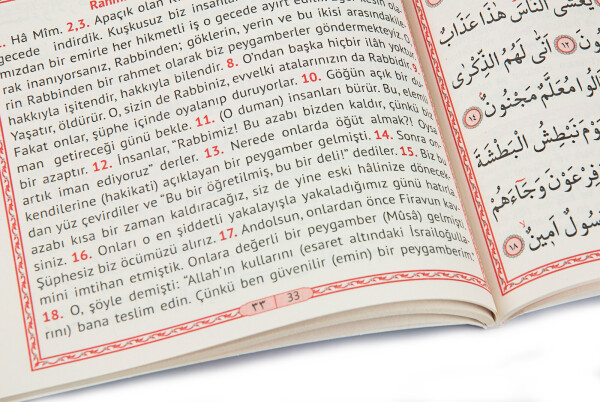 Rahmân
1. Hâ Mîm. 2,3. Apaçık olan Ki
gecede indirdik. Kuşkusuz biz insanları
mızdan bir emirle her hikmetli iş o gecede ayırt edilir.
rak inanıyorsanız, Rabbinden; göklerin, yerin ve bu ikisi arasındakile
rin Rabbinden bir rahmet olarak biz peygamberler göndermekteyiz. O
hakkıyla işitendir, hakkıyla bilendir. 8. O'ndan başka hiçbir ilâh yoktur
Yaşatır, öldürür. O, sizin de Rabbiniz, evvelki atalarınızın da Rabbidir. 9.
Fakat onlar, şüphe içinde oyalanıp duruyorlar. 10. Göğün açık bir du
man getireceği günü bekle. 11. (O duman) insanları bürür. Bu, elem
bir azaptır. 12. İnsanlar, "Rabbimiz! Bu azabı bizden kaldır, çünkü biz
artık iman ediyoruz" derler. 13. Nerede onlarda öğüt almak?! Oysa
kendilerine (hakikati) açıklayan bir peygamber gelmişti. 14. Sonra on
dan yüz çevirdiler ve "Bu bir öğretilmiş, bu bir deli!" dediler. 15. Biz bu
azabı kısa bir zaman kaldıracağız, siz de yine eski hâlinize dönecek
siniz. 16. Onları o en şiddetli yakalayışla yakaladığımız günü hatırla
Şüphesiz biz öcümüzü alırız. 17. Andolsun, onlardan önce Firavun kav
mini imtihan etmiştik. Onlara değerli bir peygamber (Mûsâ) gelmişti
18. O, şöyle demişti: "Allah'ın kullarını (esaret altındaki İsrailoğulla
rını) bana teslim edin. Çünkü ben güvenilir (emin) bir peygamberim."
٣٣ 33
يَغْشَى النَّاسَ هٰذَا عَذَابٌ
١٢ اَنّٰى لَهُمُ الذِّكْرٰى
الُوا مُعَلَّمٌ مَجْنُونٌ
١٤
وْمَ نَبْطِشُ الْبَطْشَةَ
فِرْعَوْنَ وَجَٓاءَهُمْ
سُولٌ اَم۪ينٌ ١٨